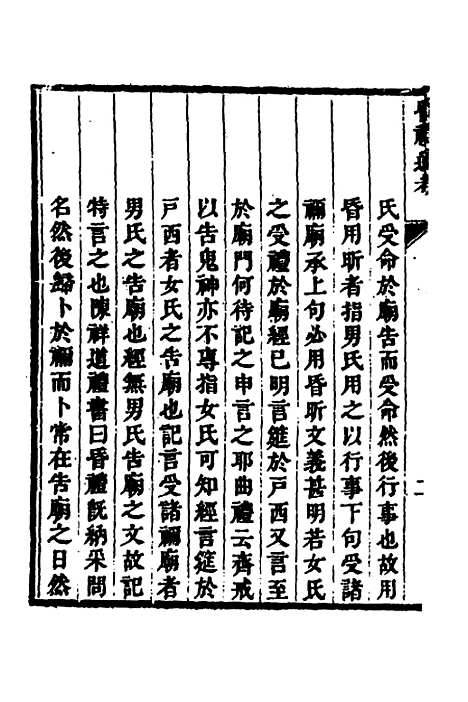 昏禮通考
二
氏受命於廟告而受命然後行事也故用
昏用昕者指男氏用之以行事下句受諸
禰廟承上句必用昏昕文義甚明若女氏
之受禮於廟經已明言筵於戸西又言至
於廟門何待記之申言之耶曲禮云齊戒
以告鬼神亦不專指女氏可知經言筵於
戸西者女氏之告廟也記言受諸禰廟者
男氏之告廟也經無男氏告廟之文故記
特言之也陳祥道禮書曰昏禮旣納采問
名然後歸卜於禰而卜常在告廟之日然